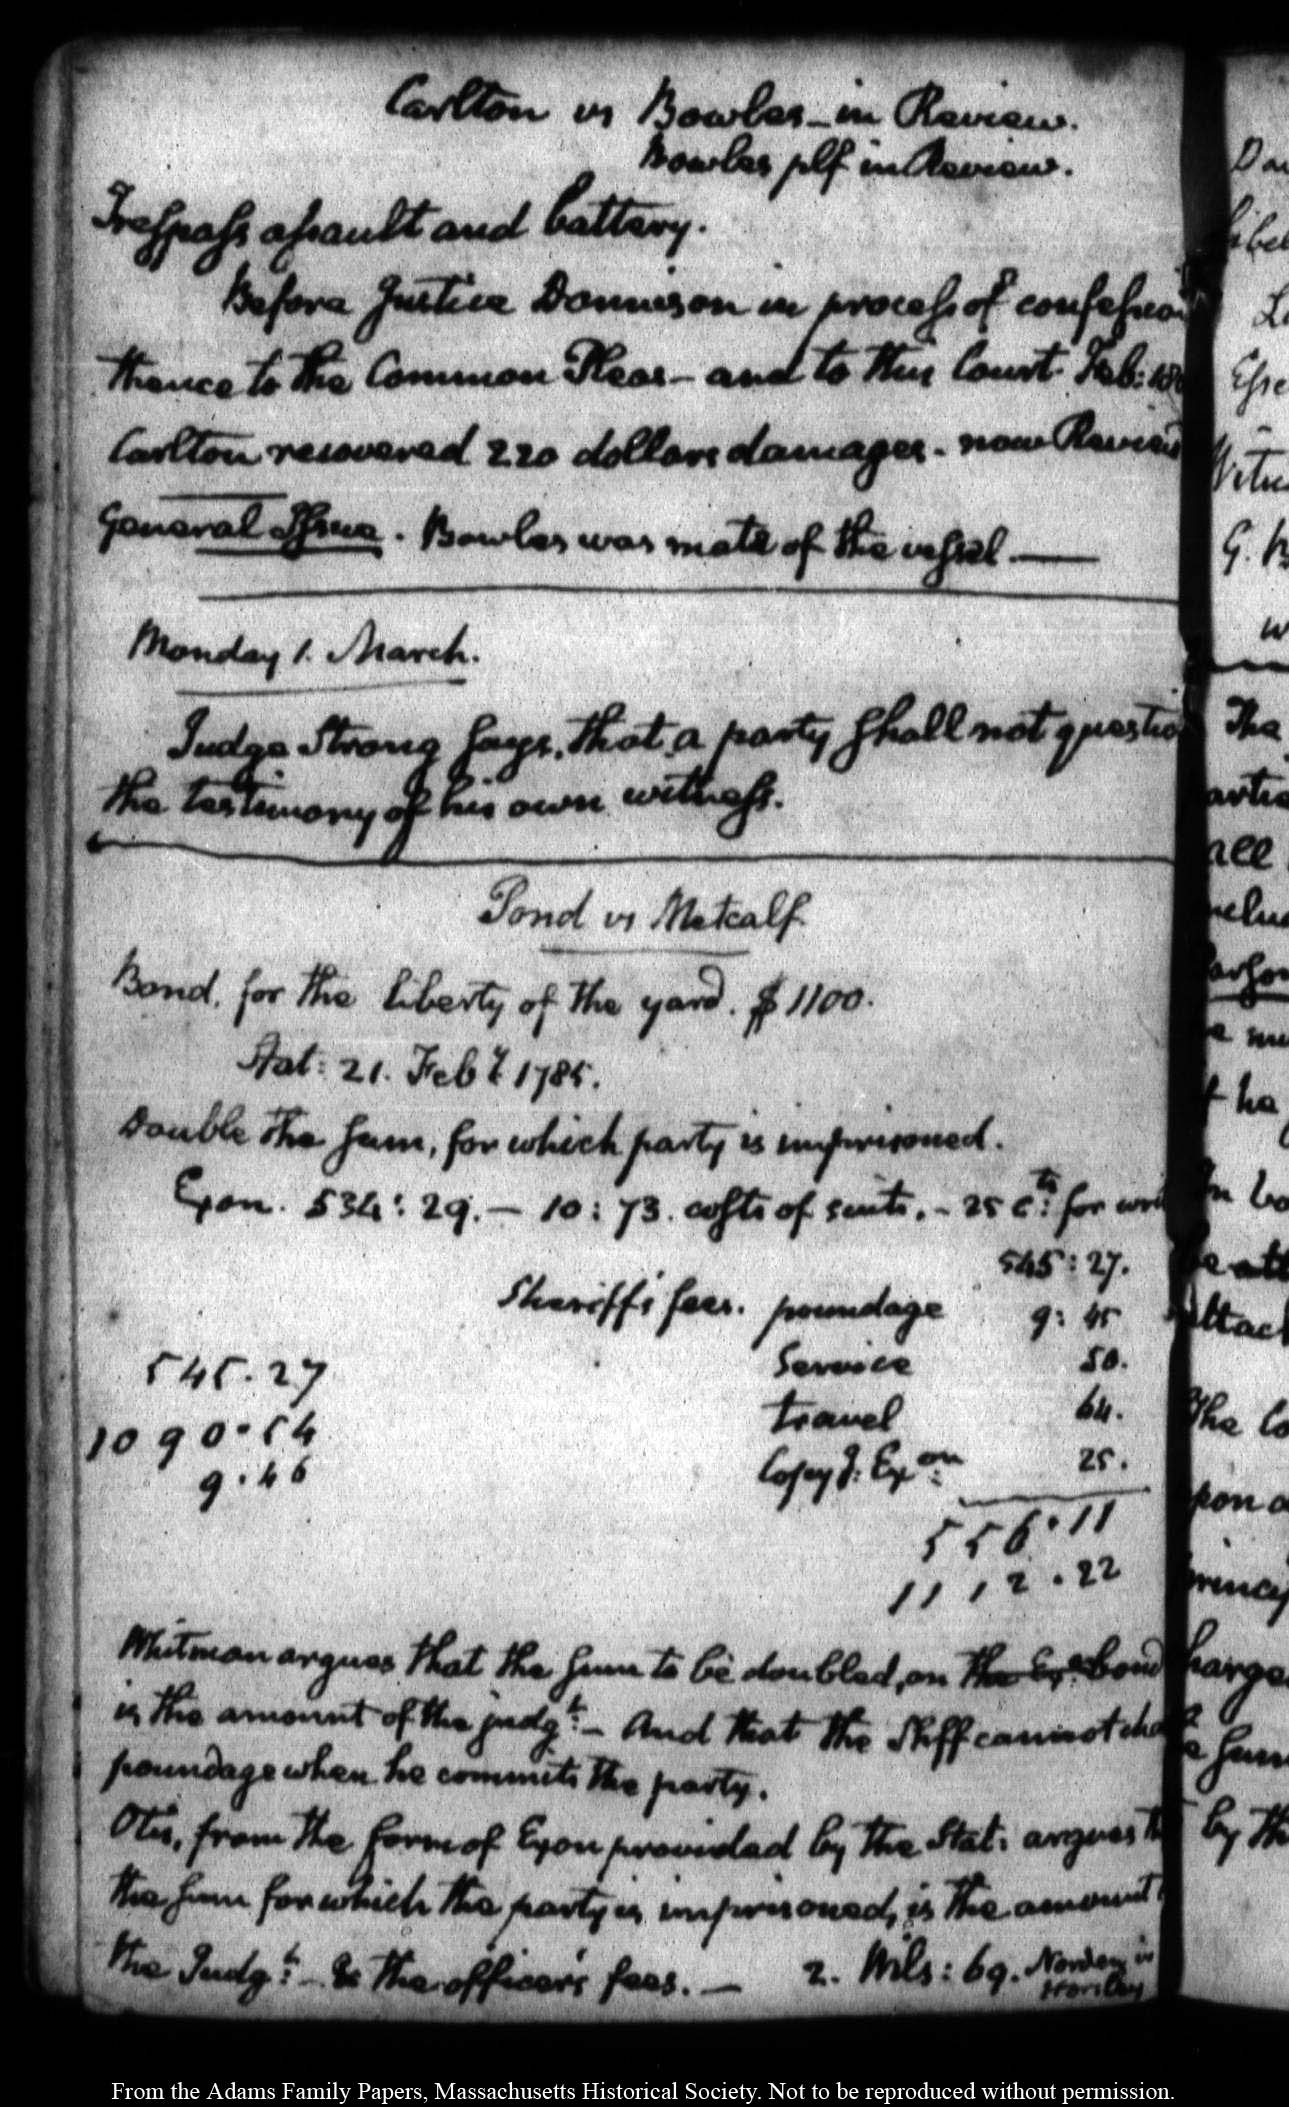 Carlton vs Bowles - in Review.
Bowles plf in Review.
Trespass assault and battery.
Before Justice Donnison in process of confession
thence to the Common Pleas - and to this Court. Feb:
Carlton recovered 220 dollars damages. now Review
General Issue. Bowles was mate of the vessel. —
Monday 1. March.
Judge Strong says, that a party shall not questio
the testimony of his own witness.
Pond vs Metcalf
Bond. for the liberty of the yard. $1100.
Stat: 21. Feby. 1785.
Double the sum, for which party is imprisoned.
Exon. 534: 29. — 10: 73. costs of suits. - 25 cts: for writ
545: 27.
Sheriff's fees. poundage 9: 45
Service 50.
travel 64.
Copy of Exon: 25.
556.11
1112.22
545.27
1090.54
9.46
Whitman argues that the sum to be doubled, on the Exn: bond
is the amount of the judgt: - And that the Shff cannot cha
poundage when he commits the party.
Otis, from the form of Exon provided by the Stat: argues th
the sum for which the party is imprisoned, is the amount
the Judgt: - & the officer's fees. — 2. Wils: 69. Norden in
Horsley
Da
libel
Esse
Witn
G.
w
The
artie
all
nclu
arson
e mu
t he
In bo
be att
attach
The Co
pon a
princip
harge
e sum
by th
From the Adams Family Papers, Massachusetts Historical Society. Not to be reproduced without permission.